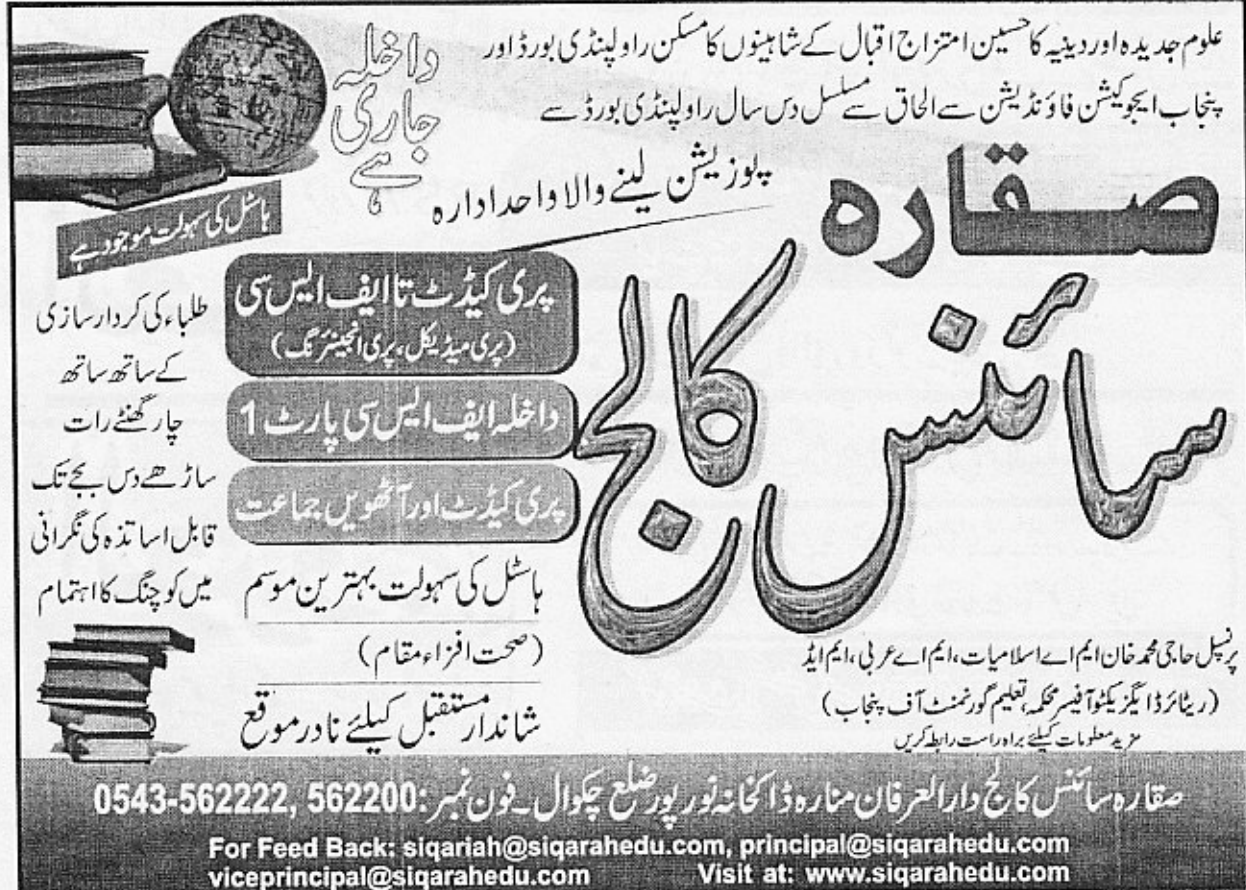 علوم جدیدہ اور دینیہ کا حسین امتزاج اقبال کے شاہینوں کا مسکن راولپنڈی بورڈ اور
پنجاب ایجوکیشن فاؤنڈیشن سے الحاق سے مسلسل دس سال راولپنڈی بورڈ سے
پوزیشن لینے والا واحد ادارہ
صقارہ
سائنس کالج
داخلہ
جاری
ہے
ہاسٹل کی سہولت موجود ہے
پری کیڈٹ تا ایف ایس سی
(پری میڈیکل، پری انجینئرنگ)
داخلہ ایف ایس سی پارٹ 1
پری کیڈٹ اور آٹھویں جماعت
ہاسٹل کی سہولت بہترین موسم
(صحت افزاء مقام)
شاندار مستقبل کیلئے نادر موقع
طلباء کی کردار سازی
کے ساتھ ساتھ
چار گھنٹے رات
ساڑھے دس بجے تک
قابل اساتذہ کی نگرانی
میں کوچنگ کا اہتمام
پرنسپل حاجی محمد خان ایم اے اسلامیات، ایم اے عربی، ایم ایڈ
(ریٹائرڈ ایگزیکٹو آفیسر محکمہ تعلیم گورنمنٹ آف پنجاب)
مزید معلومات کیلئے براہ راست رابطہ کریں
صقارہ سائنس کالج دارالعرفان منارہ ڈاکخانہ نور پور ضلع چکوال۔ فون نمبر: 0543-562222, 562200
For Feed Back: siqariah@siqarahedu.com, principal@siqarahedu.com
viceprincipal@siqarahedu.com Visit at: www.siqarahedu.com